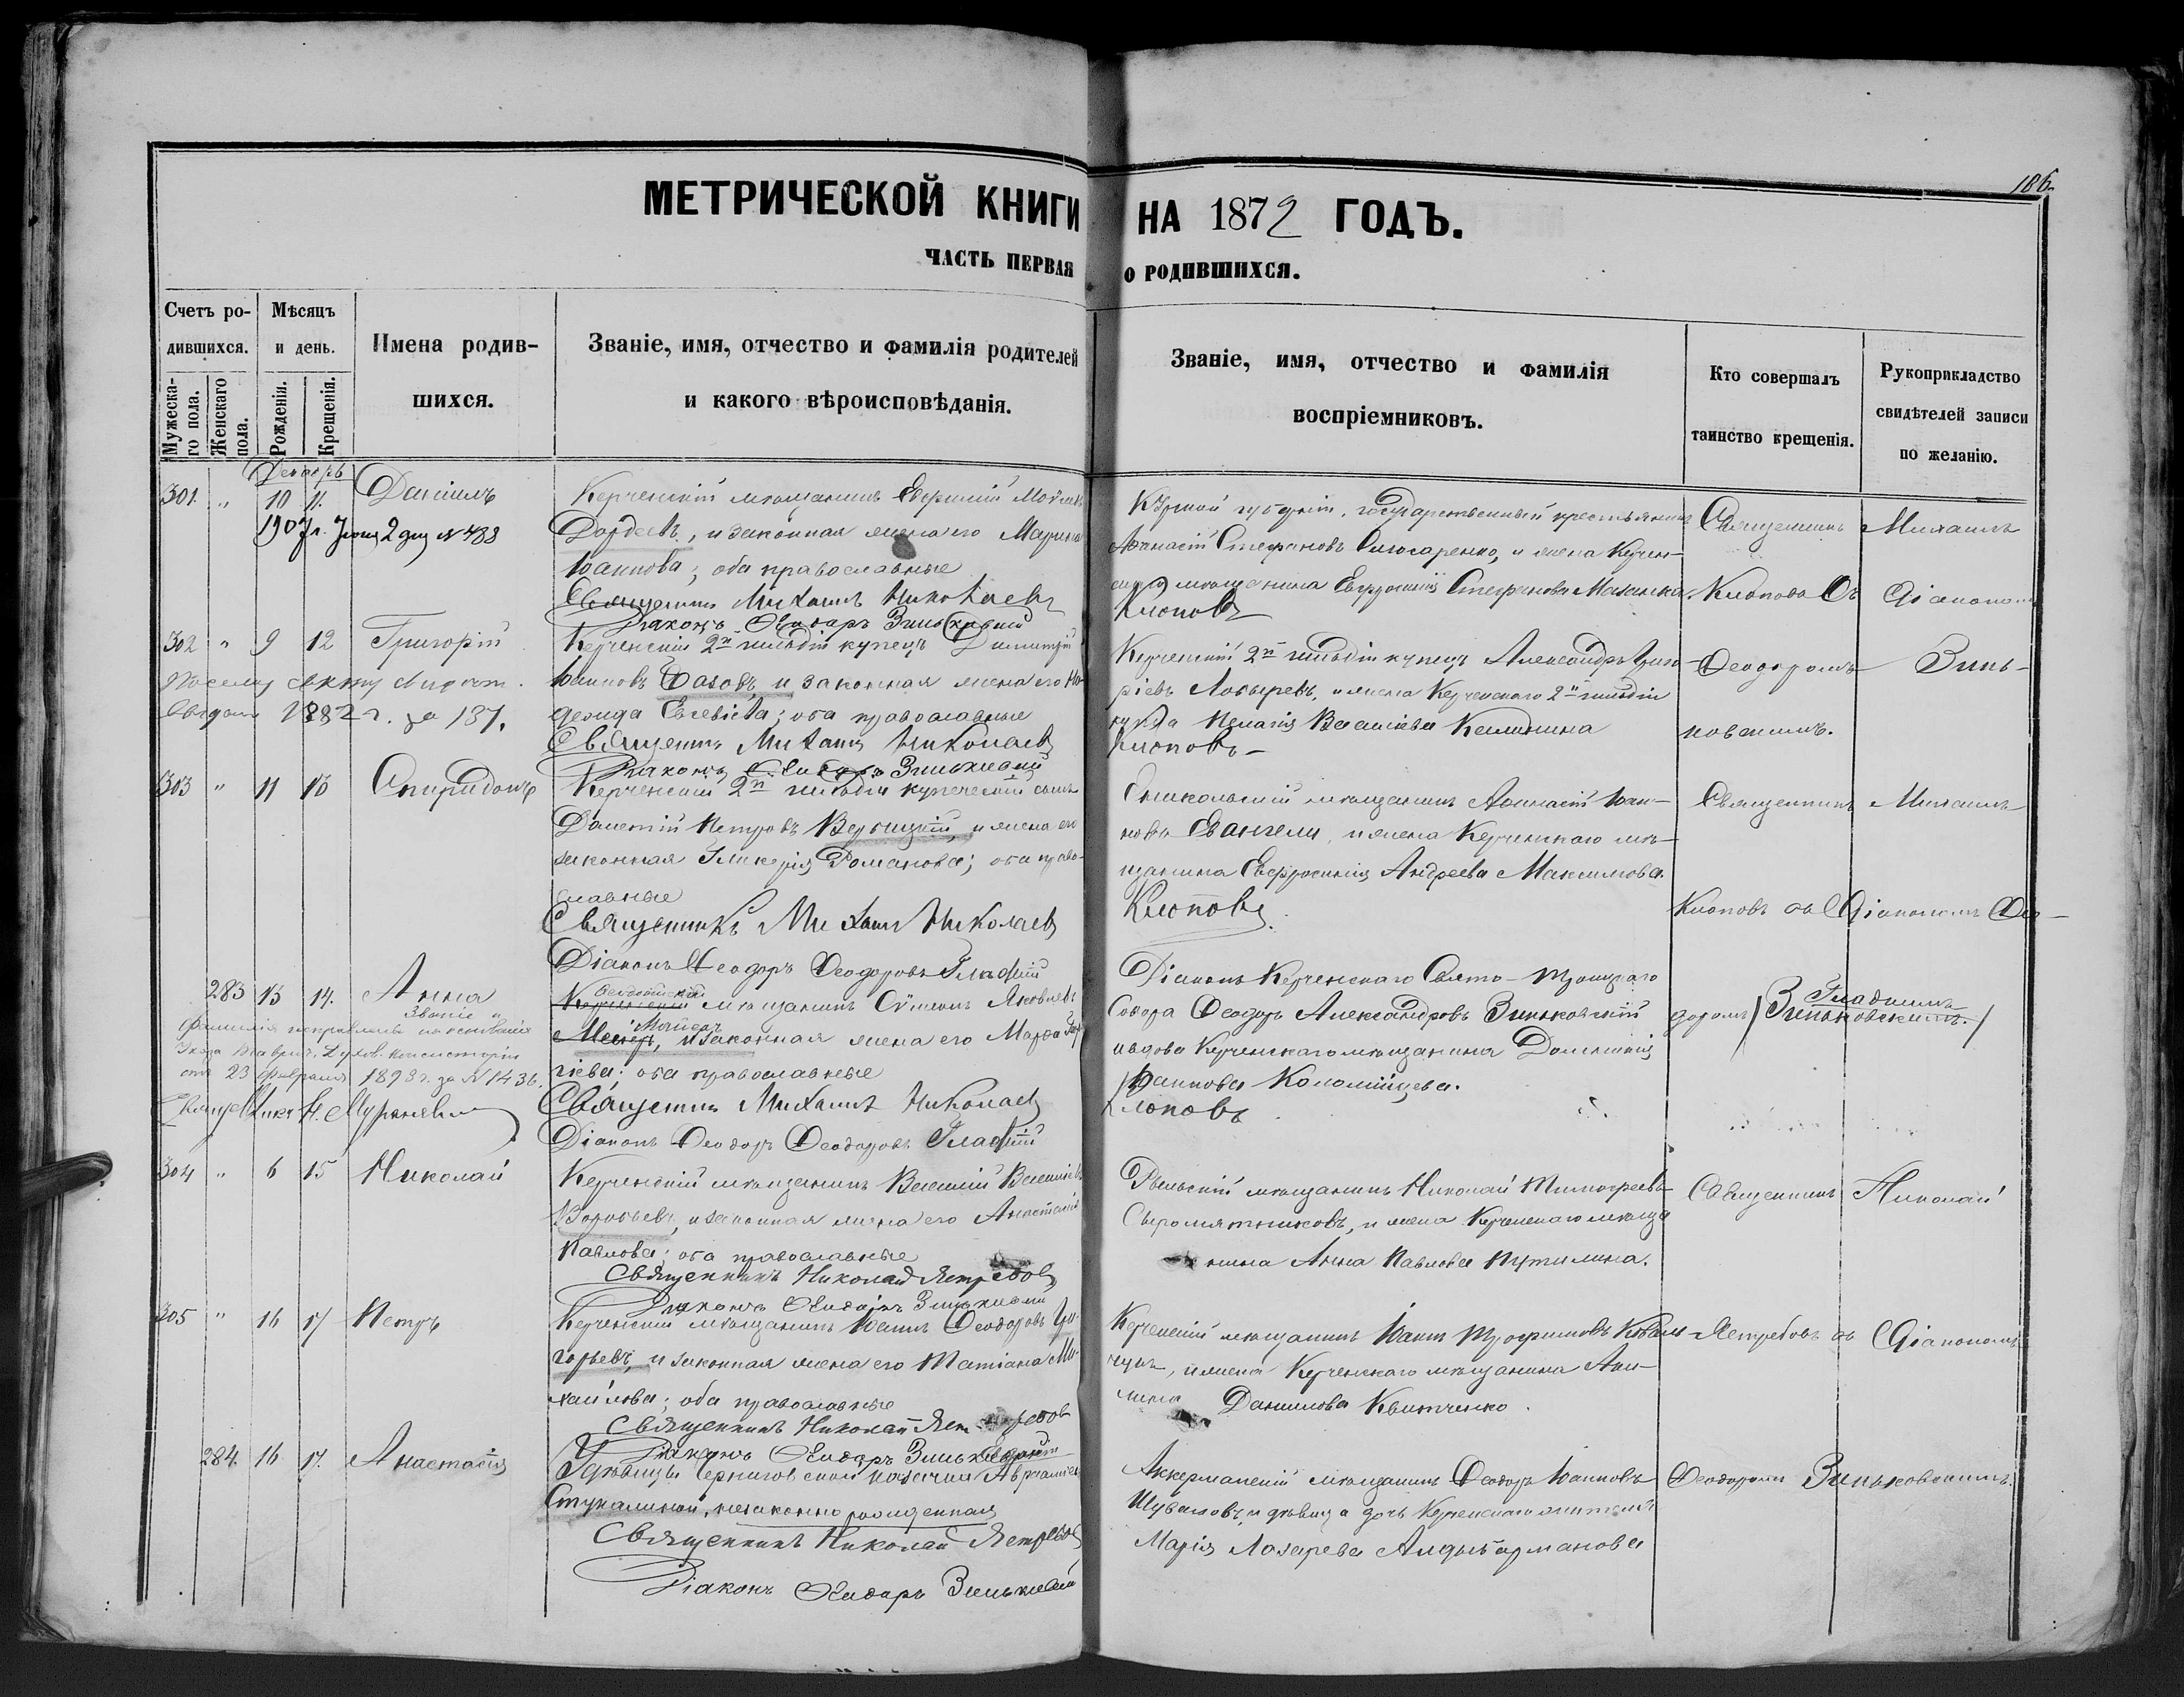 186.
МЕТРИЧЕСКОЙ КНИГИ НА 1872 ГОДЪ.
ЧАСТЬ ПЕРВАЯ О РОДИВШИХСЯ.
Счетъ ро-
дившихся.
Мужеска-
го пола.
Женскаго
пола.
Мѣсяцъ
и день.
Рожденія.
Крещенія.
Имена родив-
шихся.
Званіе, имя, отчество и фамилія родителей
и какого вѣроисповѣданія.
Званіе, имя, отчество и фамилія
воспріемниковъ.
Кто совершалъ
таинство крещенія.
Рукоприкладство
свидѣтелей записи
по желанію.
Декабрь
301. " 10 11. Даніилъ
1907 г. Іюня 2 дня № 488
Керченскій мѣщанинъ Евфимій
и законная жена его Марина
Іоаннова; оба православные
Священникъ Михаилъ Николаевъ Клоповъ
Діаконъ Ѳеодоръ Зиньковскій
губерніи, государственный крестьянинъ
Аѳанасій Стефановъ и жена Керчен-
скаго мѣщанина Евфросинія Стефанова
Священникъ Михаилъ
Клоповъ Съ Діакономъ
302 " 9 12 Григорій
1882 г. за 137.
Керченскій 2й гильдіи купецъ Димитрій
Іоанновъ и законная жена его
оба православные
Священникъ Михаилъ Николаевъ Клоповъ
Діаконъ Ѳеодоръ Зиньковскій
Керченскій 2й гильдіи купецъ Александръ Григо-
ріевъ и жена Керченскаго 2й гильдіи
купца Пелагія Василіева
Ѳеодоромъ Зинь-
ковскимъ.
303 " 11 13 Спиридонъ
Керченскій 2й гильдіи купеческій сынъ
Петровъ и жена его
законная Гликерія Романова; оба право-
славные
Священникъ Михаилъ Николаевъ Клоповъ
Діаконъ Ѳеодоръ Ѳеодоровъ Гладкій
Еникольскій мѣщанинъ Аѳанасій Іоан-
новъ Евангели, и жена Керченскаго мѣ-
щанина Евфросинія Андреева Максимова.
Священникъ Михаилъ
Клоповъ съ Діакономъ Ѳео-
283 13 14. Анна
Званіе и
фамилія исправлены на основаніи
Указа Таврич. Духов. Консисторіи
отъ 23 Февраля 1898 г. за № 1436.
Ѳеодосійскій
Керченскій мѣщанинъ Сѵмеонъ Яковлевъ
Майеръ
и законная жена его Марѳа Геор-
гіева; оба православные
Священникъ Михаилъ Николаевъ Клоповъ
Діаконъ Ѳеодоръ Ѳеодоровъ Гладкій
Діаконъ Керченскаго Свято-Троицкаго
Собора Ѳеодоръ Александровъ Зиньковскій
и вдова Керченскаго мѣщанина Домникія
Іоаннова Коломійцева.
доромъ / Зиньковскимъ. /
Гладкимъ
304 " 6 15 Николай
Керченскій мѣщанинъ Василій Василіевъ
Воробьевъ, и законная жена его Анастасія
Павлова; оба православные
Священникъ Николай Ястребовъ
Діаконъ Ѳеодоръ Зиньковскій
Рыльскій мѣщанинъ Николай Тимоѳеевъ
Сыромятниковъ, и жена Керченскаго мѣща-
нина Анна Павлова Путилина.
Священникъ Николай
305 " 16 17 Петръ
Керченскій мѣщанинъ Іоаннъ Ѳеодоровъ Гри-
горьевъ, и законная жена его Татіана Ми-
хайлова; оба православные
Священникъ Николай Ястребовъ
Діаконъ Ѳеодоръ Зиньковскій
Керченскій мѣщанинъ Іоаннъ Трофимовъ
и жена Керченскаго мѣщанина
Даніилова Квитченко.
Ястребовъ съ Діакономъ
284. 16 17. Анастасія
незаконно рожденная
Священникъ Николай Ястребовъ
Діаконъ Ѳеодоръ Зиньковскій
Аккерманскій мѣщанинъ Ѳеодоръ Іоанновъ
Шуваловъ, и дѣвица дочь Керченскаго жителя
Марія Лазарева
Ѳеодоромъ Зиньковскимъ.